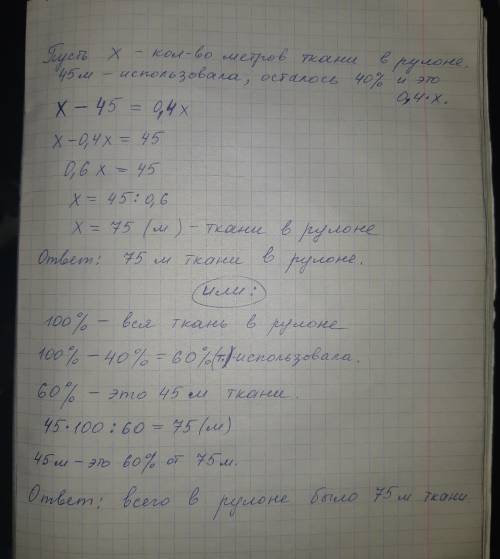 Пусть х - кол-во метров ткани в рулоне.
45м - использовала, осталось 40% и это
0,4·х.
х - 45 = 0,4х
х-0,4х = 45
0,6х = 45
х = 45:0,6
х = 75 (м) - ткани в рулоне
Ответ: 75 м ткани в рулоне.
или:
100% - вся ткань в рулоне
100% - 40% = 60% использовала.
60% - это 45м ткани.
45·100:60 = 75(м)
45м - это 60% от 75м.
Ответ: всего в рулоне было 75м ткани